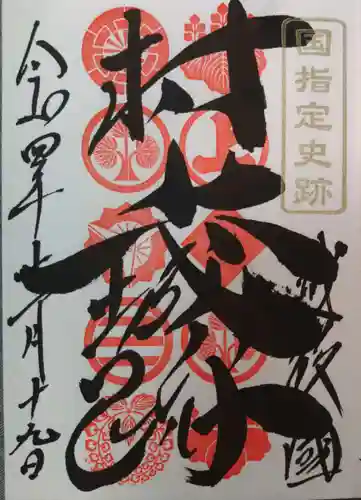 国指定史跡
越後國
村上城跡
令和四年十一月十九日